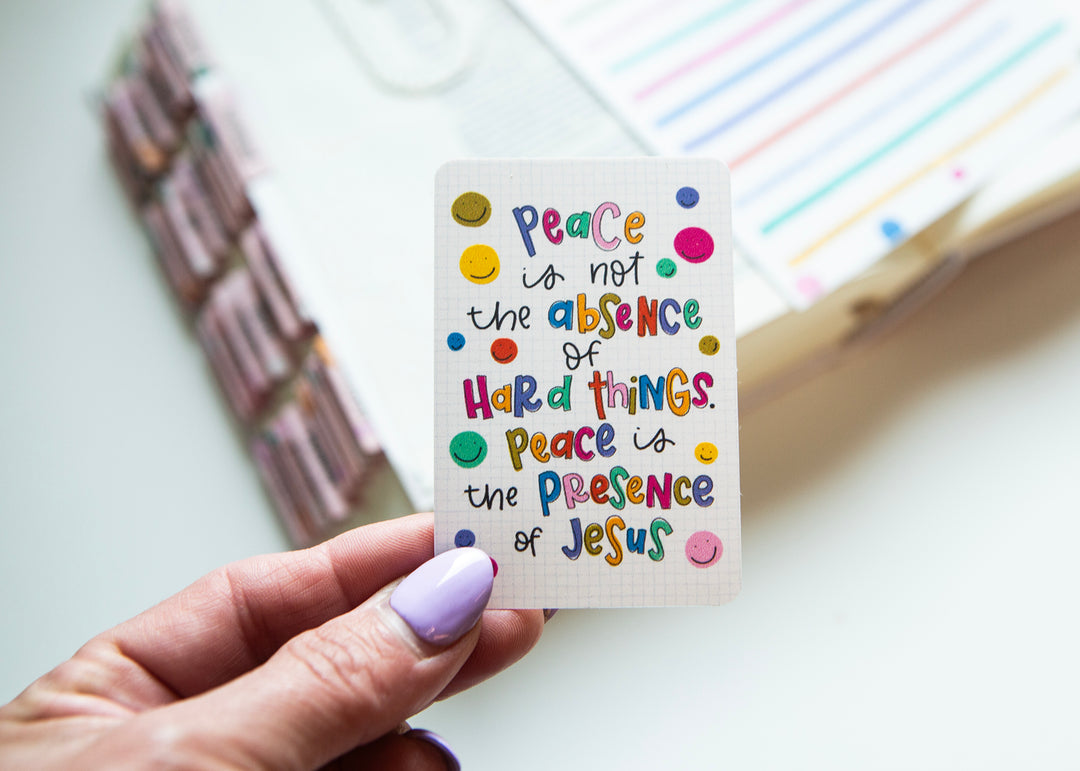 Peace
is not
the absence
of
Hard things.
Peace is
the presence
of Jesus